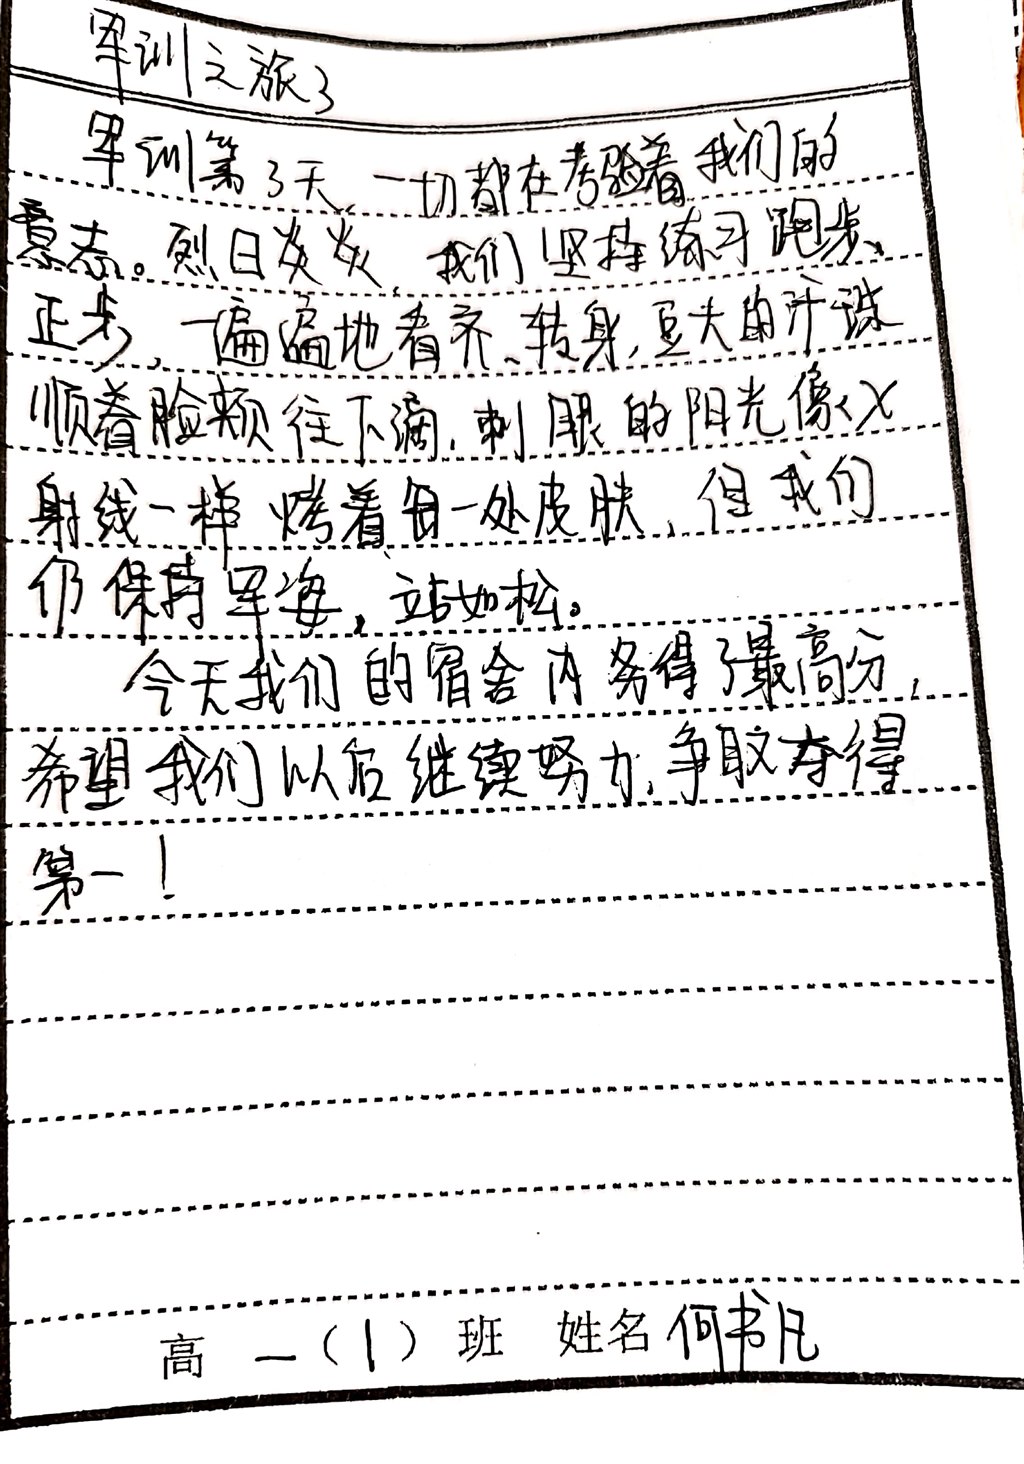 军训之旅3
军训第3天,一切都在考验着我们的
意志。烈日炎炎,我们坚持练习跑步、
正步,一遍遍地看齐、转身,豆大的汗珠
顺着脸颊往下滴,刺眼的阳光像X
射线一样烤着每一处皮肤,但我们
仍保持军姿,站如松。
今天我们的宿舍内务得了最高分,
希望我们以后继续努力,争取夺得
第一!
高一(1)班 姓名何书凡